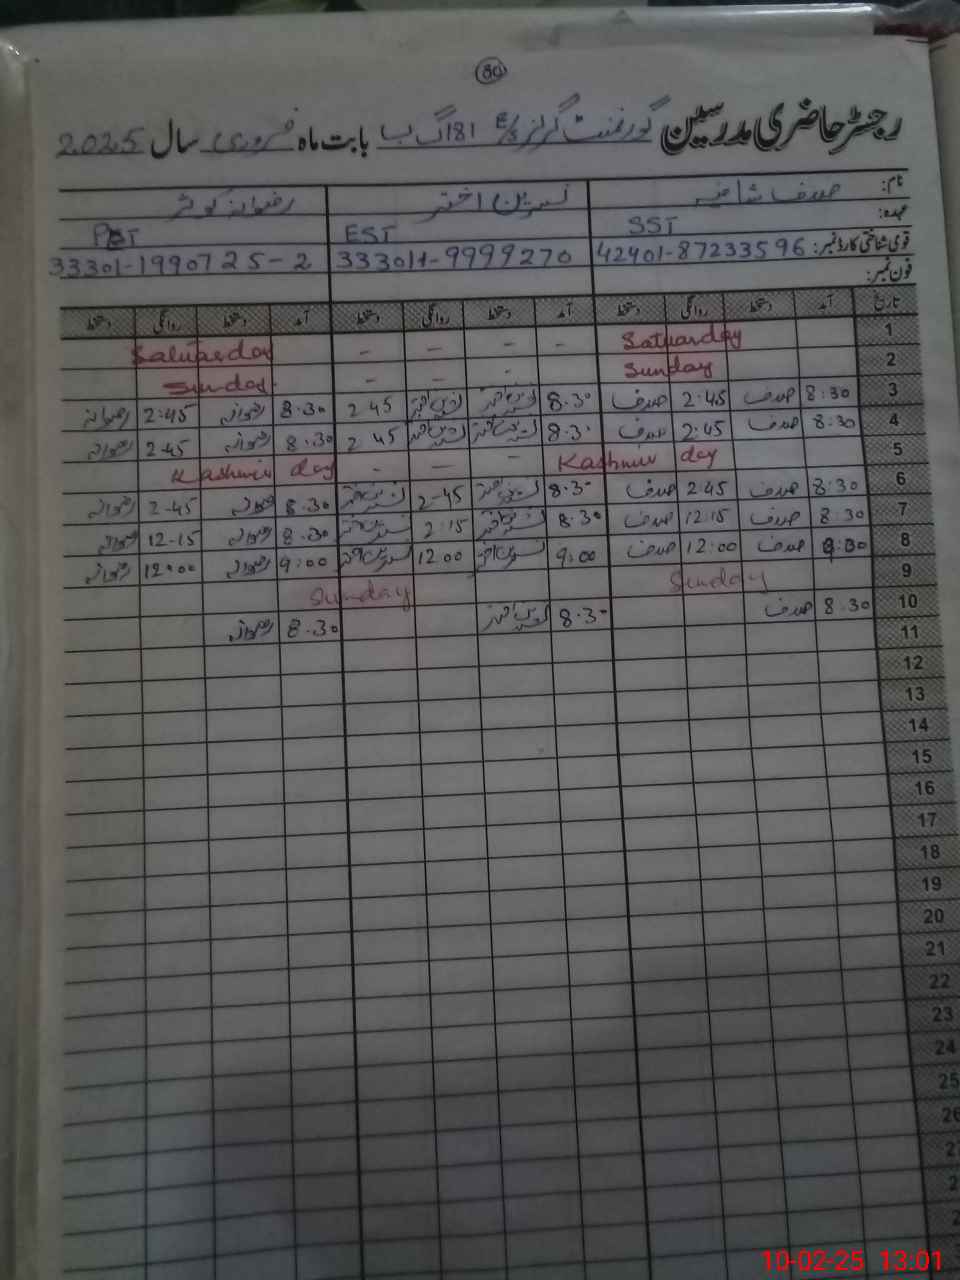 80
رجسٹر حاضری مدرسین گورنمنٹ گرلز E/S 181 گ ب بابت ماہ فروری سال 2025
نام: صدف شاہد نسرین اختر رضوانہ کوثر
عہدہ: SST EST PST
قومی شناختی کارڈ نمبر: 42401-87233596 333011-9999270 33301-1990725-2
فون نمبر:
تاریخ آمد دستخط روانگی دستخط آمد دستخط روانگی دستخط آمد دستخط روانگی دستخط
1 Satuarday - - - - Satuarday
2 Sunday - - - Sunday
3 8:30 صدف 2:45 صدف 8.30 نسرین اختر نسرین اختر 2 45 8.30 رضوانہ 2:45 رضوانہ
4 8:30 صدف 2:45 صدف 8.30 نسرین اختر نسرین اختر 2 45 8.30 رضوانہ 2-45 رضوانہ
5 Kashmir day - - - Kashmir day
6 8:30 صدف 2:45 صدف 8.30 نسرین اختر 2-45 نسرین اختر 8.30 رضوانہ 2-45 رضوانہ
7 8:30 صدف 12:15 صدف 8.30 نسرین اختر 2:15 نسرین اختر 8.30 رضوانہ 12-15 رضوانہ
8 9:00 صدف 12:00 صدف 9:00 نسرین اختر 12 00 نسرین اختر 9:00 رضوانہ 12:00 رضوانہ
9 Sunday Sunday
10 8:30 صدف 8.30 نسرین اختر 8.30 رضوانہ
11
12
13
14
15
16
17
18
19
20
21
22
23
24
25
26
2
2
2
10-02-25 13:01